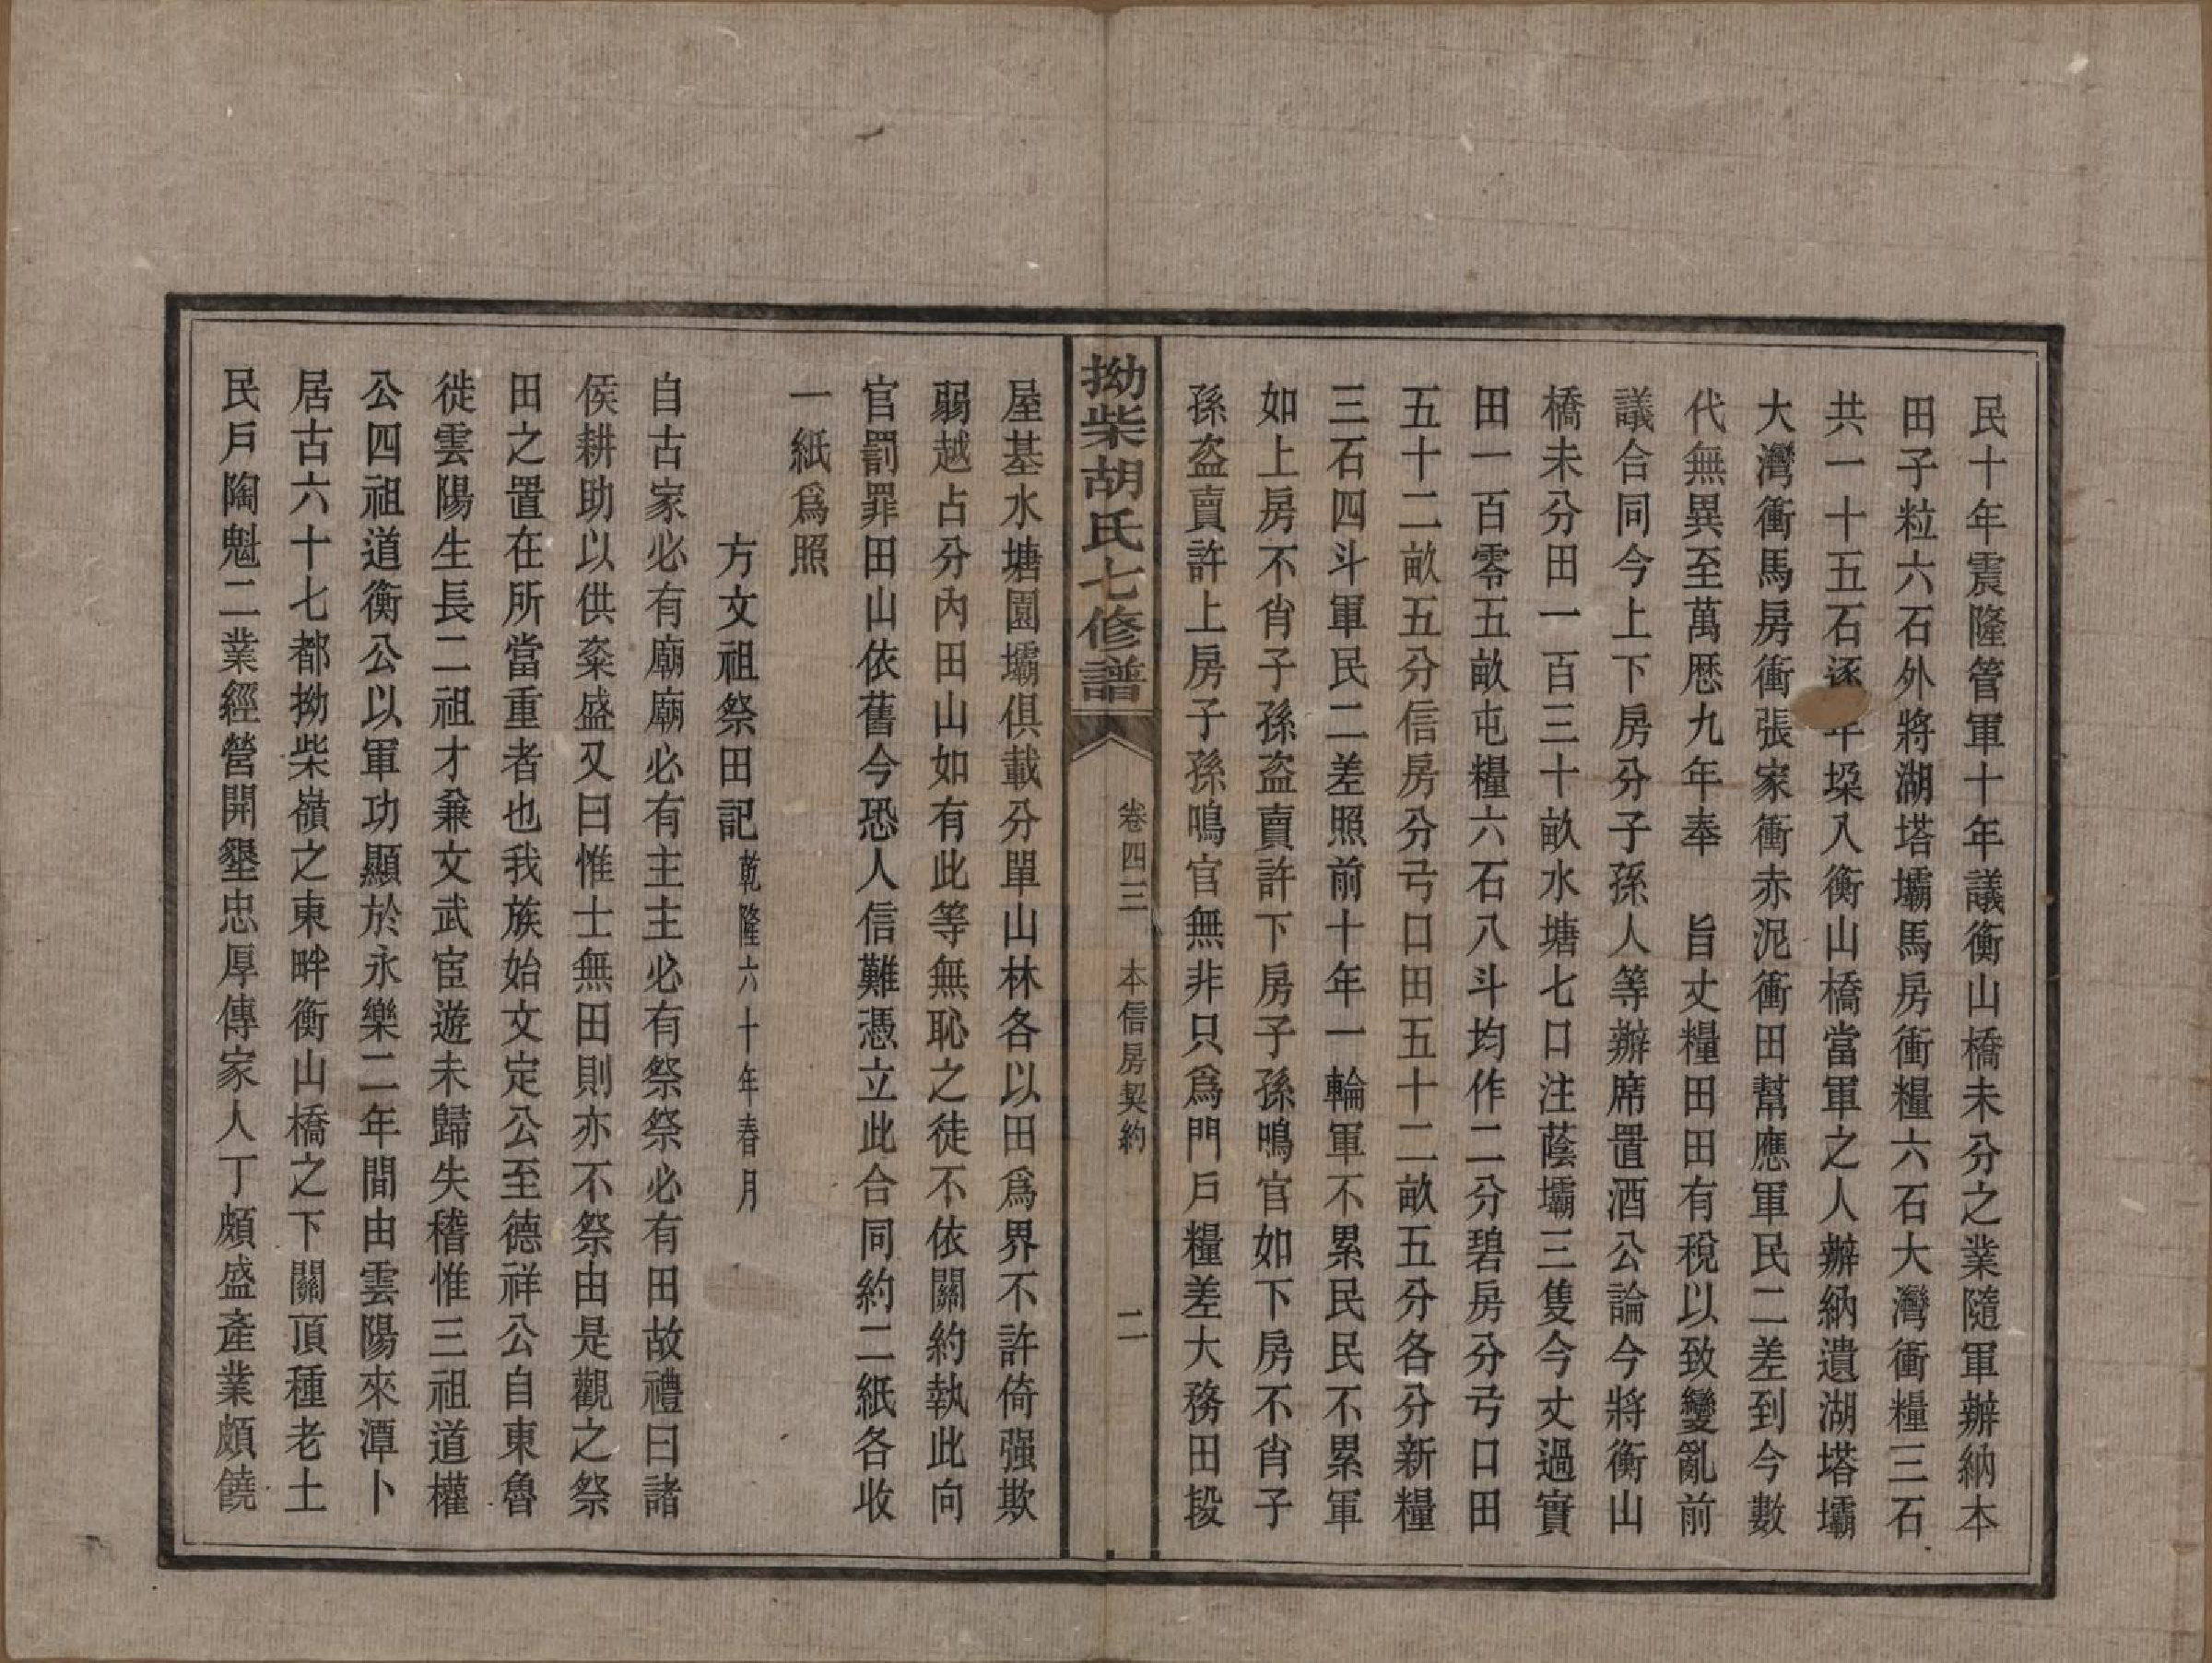 民十年震隆管軍十年議衡山橋未分之業隨軍辦納本
田子粒六石外將湖塔壩馬房衝糧六石大灣衝糧三石
共一十五石逐年垜入衡山橋當軍之人辦納遺湖塔壩
大灣衝馬房衝張家衝赤泥衝田幫應軍民二差到今數
代無異至萬厯九年奉 旨丈糧田田有稅以致變亂前
議合同今上下房分子孫人等辦席置酒公論今將衡山
橋未分田一百三十畝水塘七口注蔭壩三隻今丈過實
田一百零五畝屯糧六石八斗均作二分碧房分弓口田
五十二畝五分信房分弓口田五十二畝五分各分新糧
三石四斗軍民二差照前十年一輪軍不累民民不累軍
如上房不肖子孫盗賣許下房子孫鳴官如下房不肖子
孫盗賣許上房子孫鳴官無非只爲門戶糧差大務田段
拗柴胡氏七修譜 卷四三 本信房契約 二
屋基水塘園壩俱載分單山林各以田爲界不許倚强欺
弱越占分內田山如有此等無恥之徒不依關約執此向
官罰罪田山依舊今恐人信難憑立此合同約二紙各收
一紙爲照
方文祖祭田記乾隆六十年春月
自古家必有廟廟必有主主必有祭祭必有田故禮曰諸
侯耕助以供粢盛又曰惟士無田則亦不祭由是觀之祭
田之置在所當重者也我族始文定公至德祥公自東魯
徙雲陽生長二祖才兼文武宦遊未歸失稽惟三祖道權
公四祖道衡公以軍功顯於永樂二年間由雲陽來潭卜
居古六十七都拗柴嶺之東畔衡山橋之下關頂種老土
民戶陶魁二業經營開墾忠厚傳家人丁頗盛產業頗饒